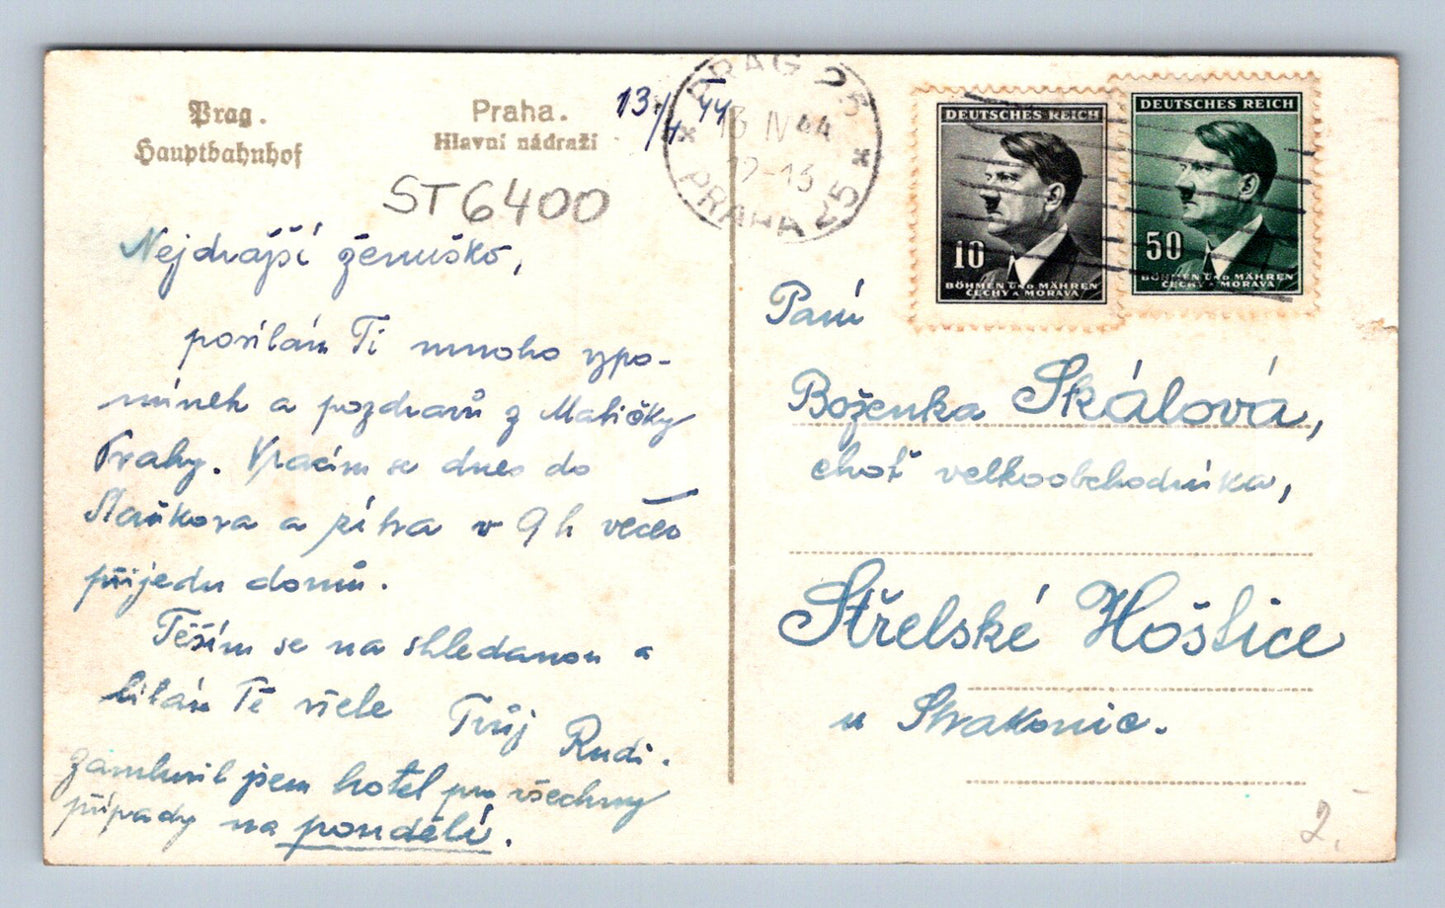 Prag.
Hauptbahnhof
Praha.
Hlavní nádraží
13/4 44
PRAG 25
13 IV 44
12-13
PRAHA 25
DEUTSCHES REICH
10
BÖHMEN UND MÄHREN
ČECHY A MORAVA
DEUTSCHES REICH
50
BÖHMEN UND MÄHREN
ČECHY A MORAVA
ST6400
Nejdražší ženuško,
posílám Ti mnoho vzpo-
mínek a pozdravů z Matičky
Prahy. Vracím se dnes do
a zítra v 9 h večer
přijedu domů.
Těším se na shledanou a
líbám Tě vřele
Tvůj Rudi.
Zamluvil jsem hotel pro všechny
případy na pondělí.
Paní
Boženka Skálová,
choť velkoobchodníka,
Střelské Hoštice
u Strakonic.
2.